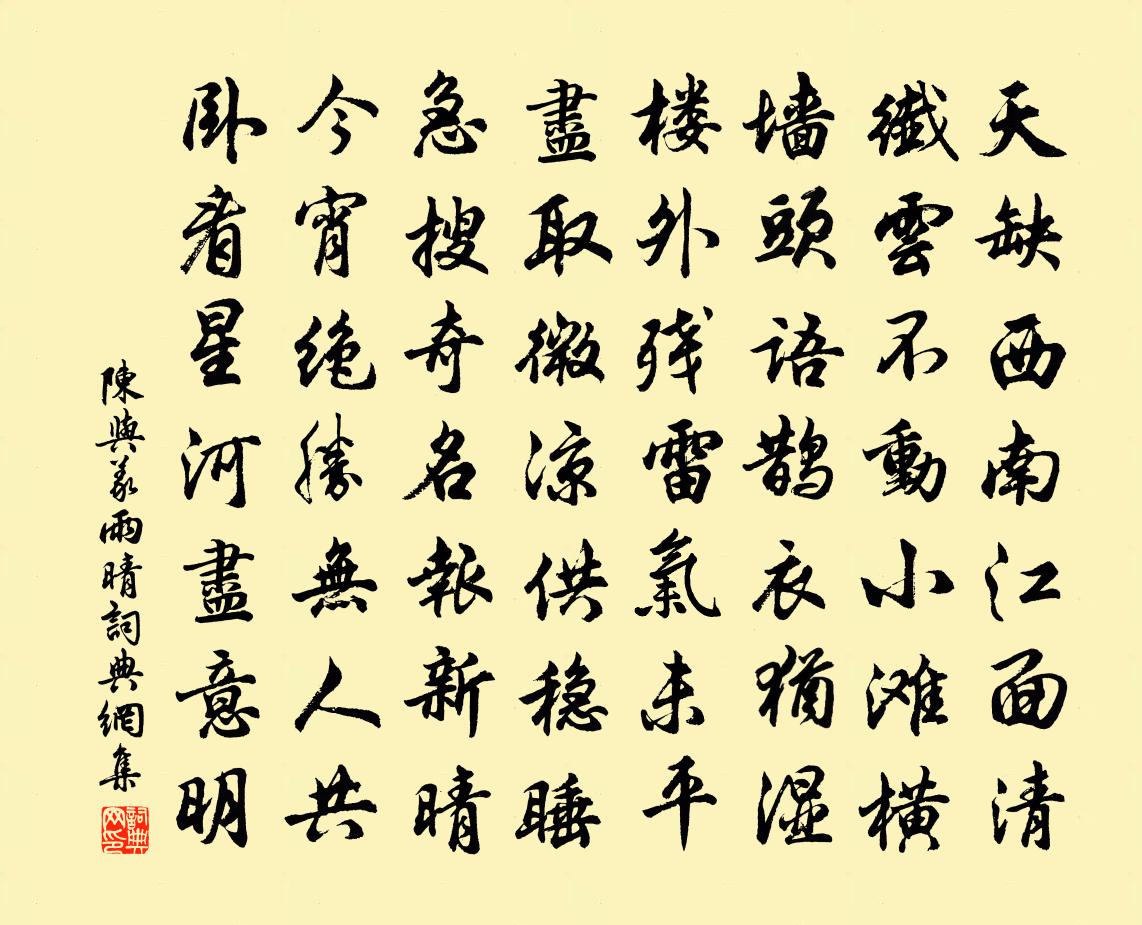 天缺西南江面清
纖雲不動小滩橫
墙頭語鹊衣犹湿
楼外残雷氣未平
盡取微涼供稳睡
急搜奇名報新晴
今宵绝勝無人共
卧看星河盡意明
陳與義雨晴詞典網集
詞典网印